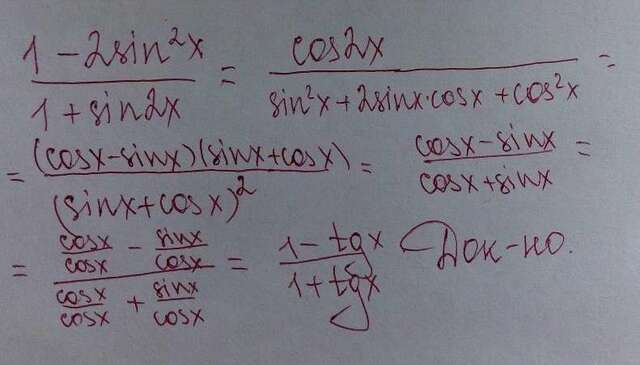 (1 - 2sin²x)/(1 + sin2x) = cos2x/(sin²x + 2sinx·cosx + cos²x) =
= (cosx - sinx)(sinx + cosx)/(sinx + cosx)² = (cosx - sinx)/(cosx + sinx) =
= (cosx/cosx - sinx/cosx)/(cosx/cosx + sinx/cosx) = (1 - tgx)/(1 + tgx) Док-но.